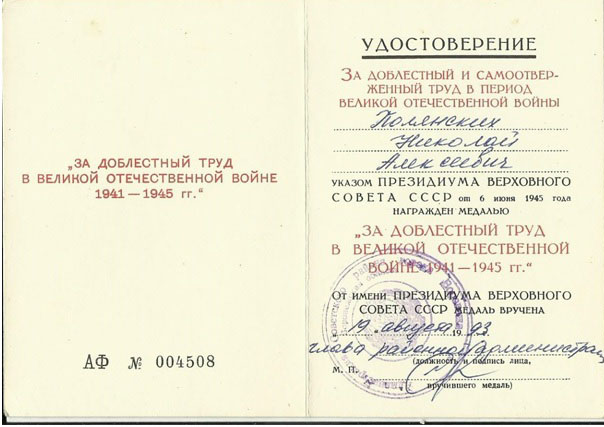 „ЗА ДОБЛЕСТНЫЙ ТРУД
В ВЕЛИКОЙ ОТЕЧЕСТВЕННОЙ ВОЙНЕ
1941—1945 гг.“
АФ № 004508
УДОСТОВЕРЕНИЕ
ЗА ДОБЛЕСТНЫЙ И САМООТВЕР-
ЖЕННЫЙ ТРУД В ПЕРИОД
ВЕЛИКОЙ ОТЕЧЕСТВЕННОЙ ВОЙНЫ
Полянских
Николай
Алексеевич
УКАЗОМ ПРЕЗИДИУМА ВЕРХОВНОГО
СОВЕТА СССР от 6 июня 1945 года
НАГРАЖДЕН МЕДАЛЬЮ
„ЗА ДОБЛЕСТНЫЙ ТРУД
В ВЕЛИКОЙ ОТЕЧЕСТВЕННОЙ
ВОЙНЕ 1941—1945 гг.“
ОТ ИМЕНИ ПРЕЗИДИУМА ВЕРХОВНОГО
СОВЕТА СССР МЕДАЛЬ ВРУЧЕНА
19 август 1993
глава районной администрац
(должность и подпись лица,
М. П.
вручившего медаль)